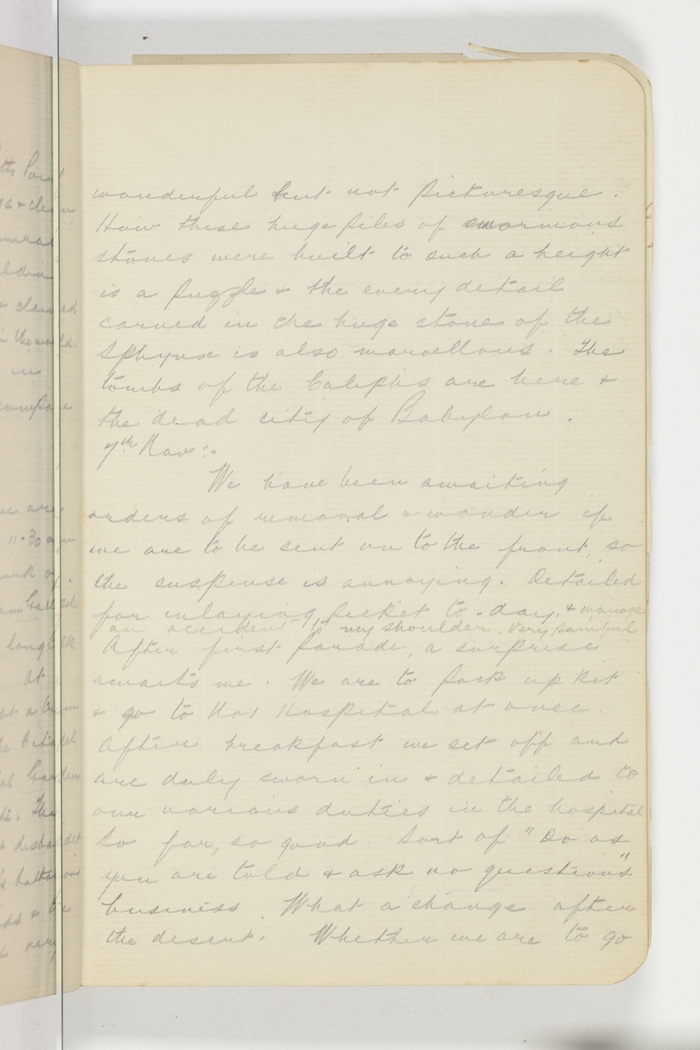 wonderful but not picturesque.
How these huge piles of enormous
stones were built to such a height
is a puzzle & the every detail
carved in the huge stone of the
Sphynx is also marvellous. The
tombs of the Caliphs are here &
the dead city of Babylon.
7th Nov:.
We have been awaiting
orders of removal & wonder if
we are to be sent on to the front, so
the suspense is annoying. Detailed
for inlaying picket to-day, & manage
an accident to my shoulder. Very painful
After first parade, a surprise
awaits me. We are to pack up kit
& go to No 1 Hospital at once.
After breakfast we set off and
are duly sworn in & detailed to
our various duties in the hospital
So far, so good. Sort of "Do as
you are told & ask no questions"
business. What a change after
the desert. Whether we are to go